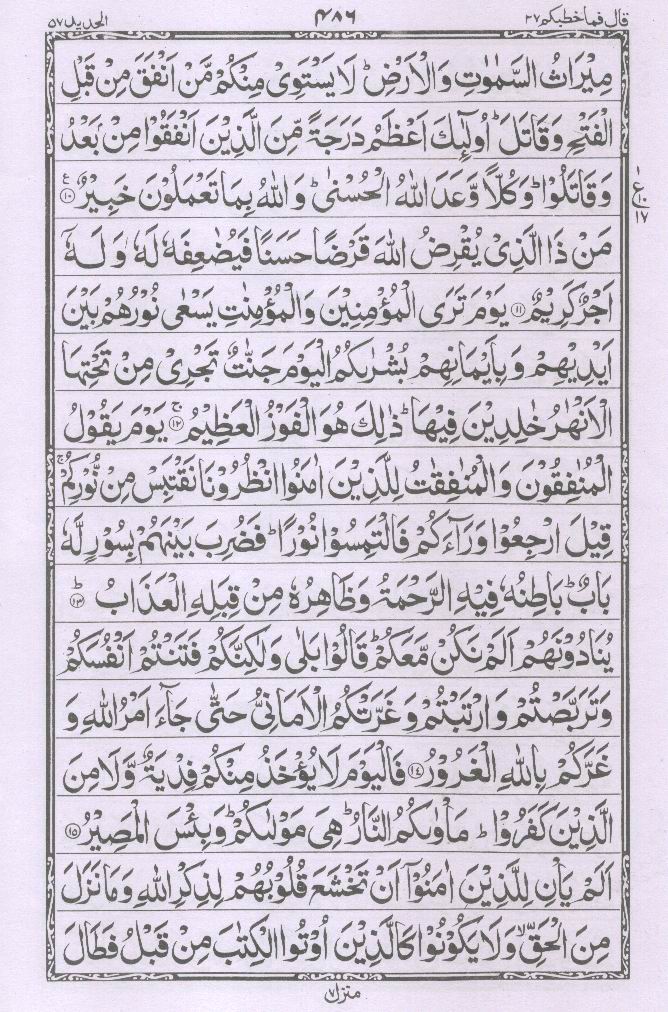 قال فما خطبكم ۲۷ ۴۸۶ الحدید ۵۷
مِيْرَاثُ السَّمٰوٰتِ وَالْاَرْضِ ؕ لَا يَسْتَوِيْ مِنْكُمْ مَّنْ اَنْفَقَ مِنْ قَبْلِ
الْفَتْحِ وَقَاتَلَ ؕ اُولٰٓئِكَ اَعْظَمُ دَرَجَةً مِّنَ الَّذِيْنَ اَنْفَقُوْا مِنْ بَعْدُ
وَقَاتَلُوْا ؕ وَكُلًّا وَّعَدَ اللّٰهُ الْحُسْنٰى ؕ وَاللّٰهُ بِمَا تَعْمَلُوْنَ خَبِيْرٌ ﴿۱۰﴾ ع
ع ۱ ۱۰ ۱۷
مَنْ ذَا الَّذِيْ يُقْرِضُ اللّٰهَ قَرْضًا حَسَنًا فَيُضٰعِفَهٗ لَهٗ وَلَهٗٓ
اَجْرٌ كَرِيْمٌ ﴿۱۱﴾ يَوْمَ تَرَى الْمُؤْمِنِيْنَ وَالْمُؤْمِنٰتِ يَسْعٰى نُوْرُهُمْ بَيْنَ
اَيْدِيْهِمْ وَبِاَيْمَانِهِمْ بُشْرٰىكُمُ الْيَوْمَ جَنّٰتٌ تَجْرِيْ مِنْ تَحْتِهَا
الْاَنْهٰرُ خٰلِدِيْنَ فِيْهَا ؕ ذٰلِكَ هُوَ الْفَوْزُ الْعَظِيْمُ ﴿۱۲﴾ ۚ يَوْمَ يَقُوْلُ
الْمُنٰفِقُوْنَ وَالْمُنٰفِقٰتُ لِلَّذِيْنَ اٰمَنُوا انْظُرُوْنَا نَقْتَبِسْ مِنْ نُّوْرِكُمْ ۚ
قِيْلَ ارْجِعُوْا وَرَآءَكُمْ فَالْتَمِسُوْا نُوْرًا ؕ فَضُرِبَ بَيْنَهُمْ بِسُوْرٍ لَّهٗ
بَابٌ ؕ بَاطِنُهٗ فِيْهِ الرَّحْمَةُ وَظَاهِرُهٗ مِنْ قِبَلِهِ الْعَذَابُ ﴿۱۳﴾ ؕ
يُنَادُوْنَهُمْ اَلَمْ نَكُنْ مَّعَكُمْ ؕ قَالُوْا بَلٰى وَلٰكِنَّكُمْ فَتَنْتُمْ اَنْفُسَكُمْ
وَتَرَبَّصْتُمْ وَارْتَبْتُمْ وَغَرَّتْكُمُ الْاَمَانِيُّ حَتّٰى جَآءَ اَمْرُ اللّٰهِ وَ
غَرَّكُمْ بِاللّٰهِ الْغَرُوْرُ ﴿۱۴﴾ فَالْيَوْمَ لَا يُؤْخَذُ مِنْكُمْ فِدْيَةٌ وَّلَا مِنَ
الَّذِيْنَ كَفَرُوْا ؕ مَاْوٰىكُمُ النَّارُ ؕ هِيَ مَوْلٰىكُمْ ؕ وَبِئْسَ الْمَصِيْرُ ﴿۱۵﴾
اَلَمْ يَاْنِ لِلَّذِيْنَ اٰمَنُوْٓا اَنْ تَخْشَعَ قُلُوْبُهُمْ لِذِكْرِ اللّٰهِ وَمَا نَزَلَ
مِنَ الْحَقِّ ۙ وَلَا يَكُوْنُوْا كَالَّذِيْنَ اُوْتُوا الْكِتٰبَ مِنْ قَبْلُ فَطَالَ
منزل ۷